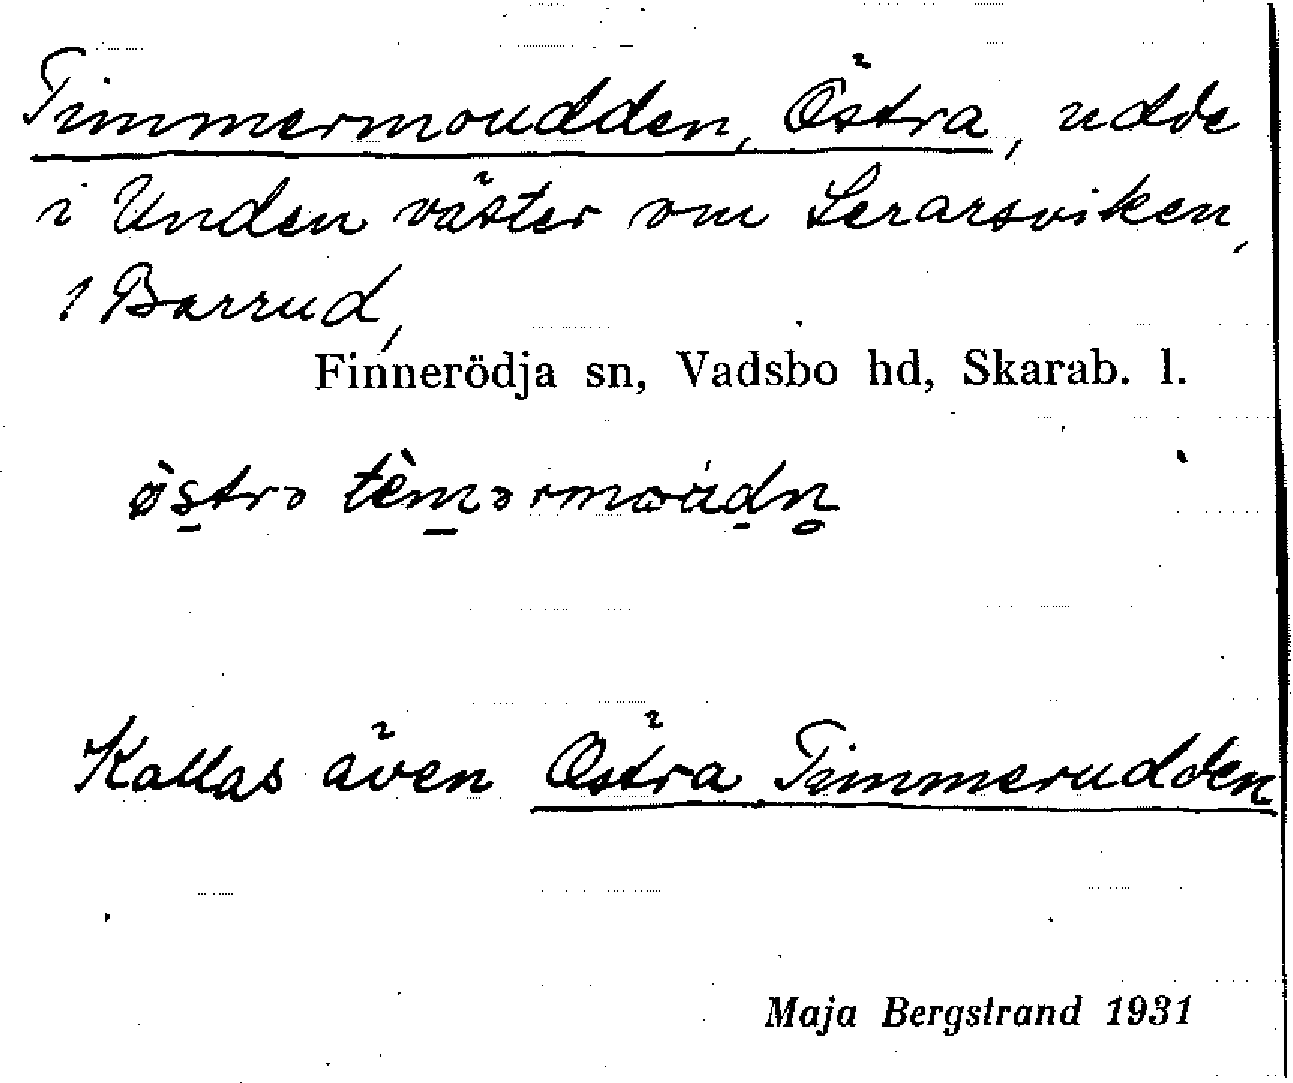 Timmermoudden, Östra, udde
i Unden väster om Lerarsviken,
1 Barrud,
Finnerödja sn, Vadsbo hd, Skarab. l.
östrə
Kallas även Östra Timmerudden
Maja Bergstrand 1931